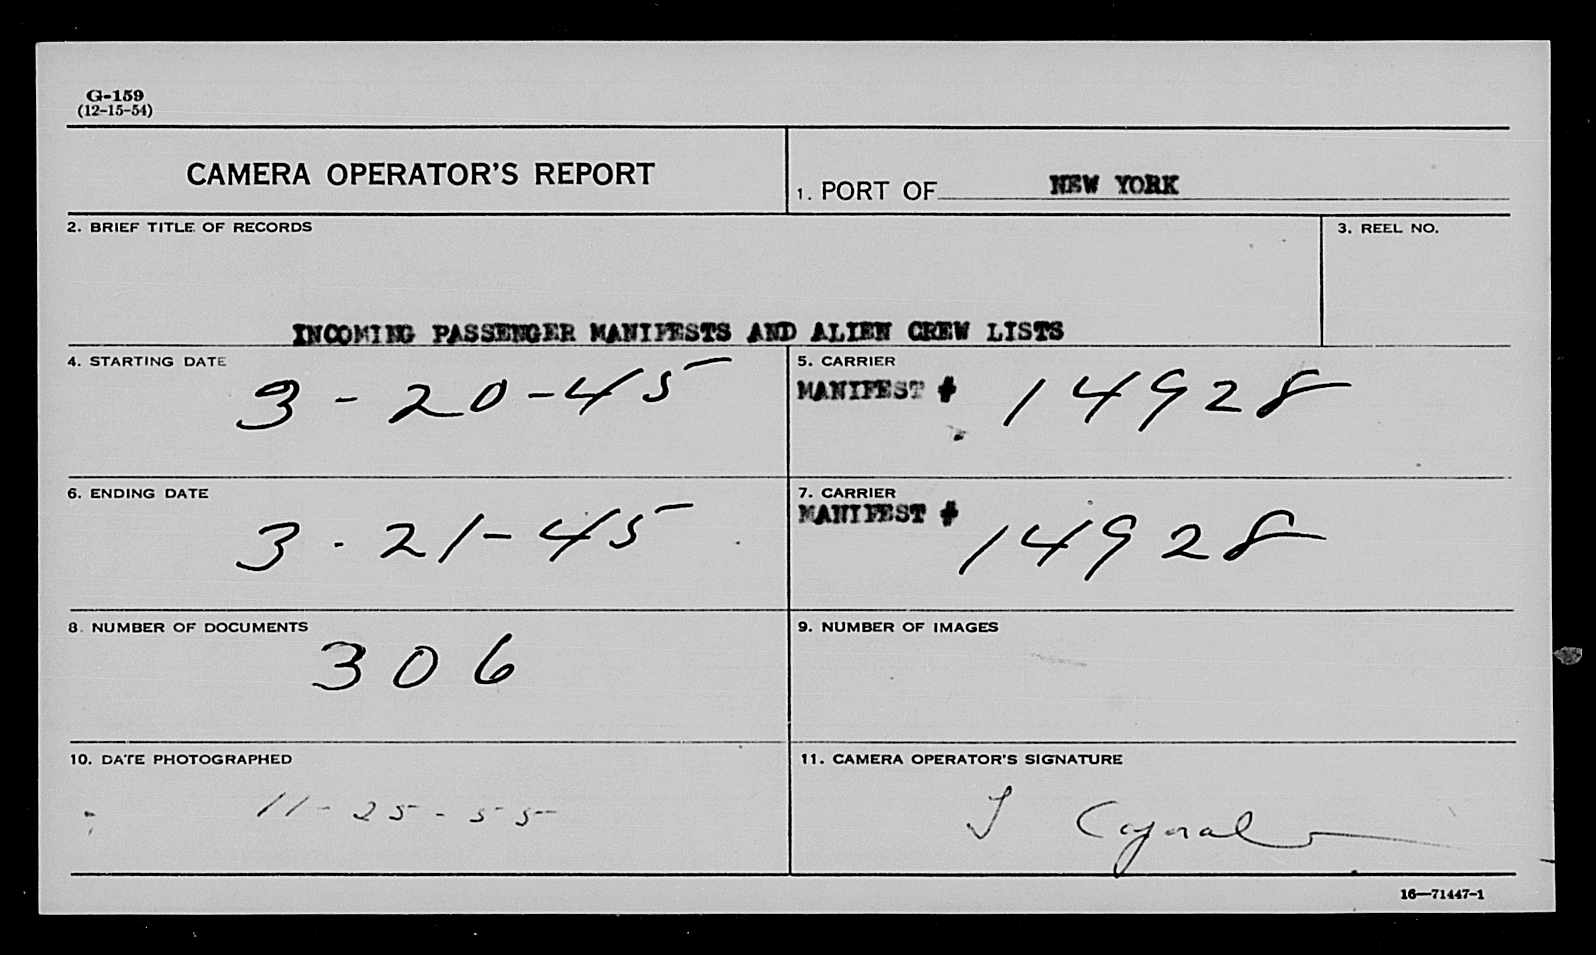 G-159
(12-15-54)
CAMERA OPERATOR'S REPORT
1. PORT OF NEW YORK
2. BRIEF TITLE OF RECORDS
3. REEL NO.
INCOMING PASSENGER MANIFESTS AND ALIEN CREW LISTS
4. STARTING DATE
3-20-45
5. CARRIER
MANIFEST # 14928
6. ENDING DATE
3-21-45
7. CARRIER
MANIFEST # 14928
8. NUMBER OF DOCUMENTS
306
9. NUMBER OF IMAGES
10. DATE PHOTOGRAPHED
11-25-55
11. CAMERA OPERATOR'S SIGNATURE
16—71447-1